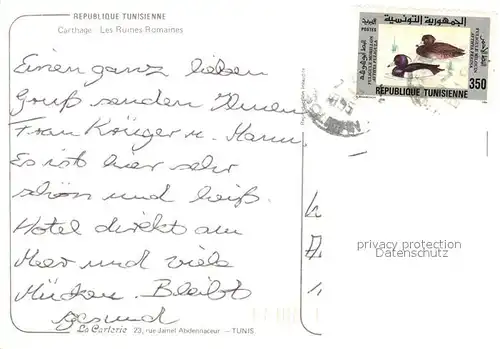 REPUBLIQUE TUNISIENNE
Carthage Les Ruines Romaines
Einen ganz lieben
Gruß senden Ihnen
Frau Krüger u. Mann.
Es ist hier sehr
schön und heiß.
Hotel direkt am
Meer und viele
Mücken. Bleibt
gesund
La Carterie 23, rue Jamel Abdennaceur - TUNIS
الجمهورية التونسية
POSTES
البريد
FULIGULE MORILLON
AYTHYA FULIGULA
350
REPUBLIQUE TUNISIENNE
privacy protection
Datenschutz